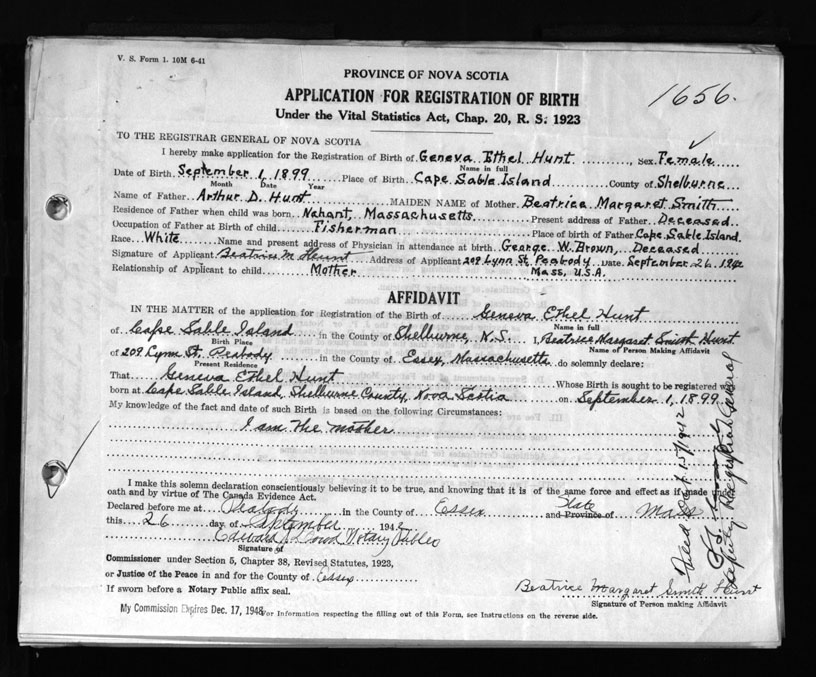 V. S. Form 1. 10M 6-41
PROVINCE OF NOVA SCOTIA
APPLICATION FOR REGISTRATION OF BIRTH
1656.
Under the Vital Statistics Act, Chap. 20, R. S. 1923
TO THE REGISTRAR GENERAL OF NOVA SCOTIA
I hereby make application for the Registration of Birth of Geneva Ethel Hunt, Sex Female
Name in full
Date of Birth September 1, 1899 Place of Birth Cape Sable Island County of Shelburne
Month Date Year
Name of Father Arthur D. Hunt MAIDEN NAME of Mother Beatrice Margaret Smith
Residence of Father when child was born Nahant, Massachusetts Present address of Father Deceased
Occupation of Father at Birth of child Fisherman Place of birth of Father Cape Sable Island.
Race White Name and present address of Physician in attendance at birth George W. Brown, Deceased
Signature of Applicant Beatrice M Hunt Address of Applicant 209 Lynn St. Peabody Date September 26, 1942
Relationship of Applicant to child Mother Mass, U.S.A.
AFFIDAVIT
IN THE MATTER of the application for Registration of the Birth of Geneva Ethel Hunt
Name in full
of Cape Sable Island in the County of Shelburne, N.S. I, Beatrice Margaret Smith Hunt
Birth Place Name of Person Making Affidavit
of 209 Lynn St. Peabody in the County of Essex, Massachusetts do solemnly declare:
Present Residence
That Geneva Ethel Hunt Whose Birth is sought to be registered was
born at Cape Sable Island, Shelburne County, Nova Scotia on September 1, 1899
My knowledge of the fact and date of such Birth is based on the following Circumstances:
I am the mother
I make this solemn declaration conscientiously believing it to be true, and knowing that it is of the same force and effect as if made under
oath and by virtue of The Canada Evidence Act.
Declared before me at Peabody in the County of Essex State and Province of Mass
this 26 day of September 1942
Edward Notary Public
Signature of
Commissioner under Section 5, Chapter 38, Revised Statutes, 1923,
or Justice of the Peace in and for the County of Essex
If sworn before a Notary Public affix seal.
Beatrice Margaret Smith Hunt
Signature of Person making Affidavit
My Commission Expires Dec. 17, 1948
For Information respecting the filling out of this Form, see Instructions on the reverse side.
Filed 1942
Deputy Registrar General